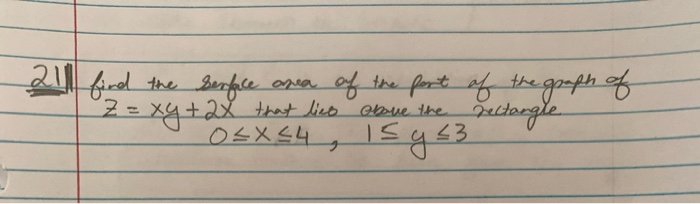 21 find the surface area of the part of the graph of
z = xy + 2x that lies above the rectangle
0 ≤ x ≤ 4 , 1 ≤ y ≤ 3